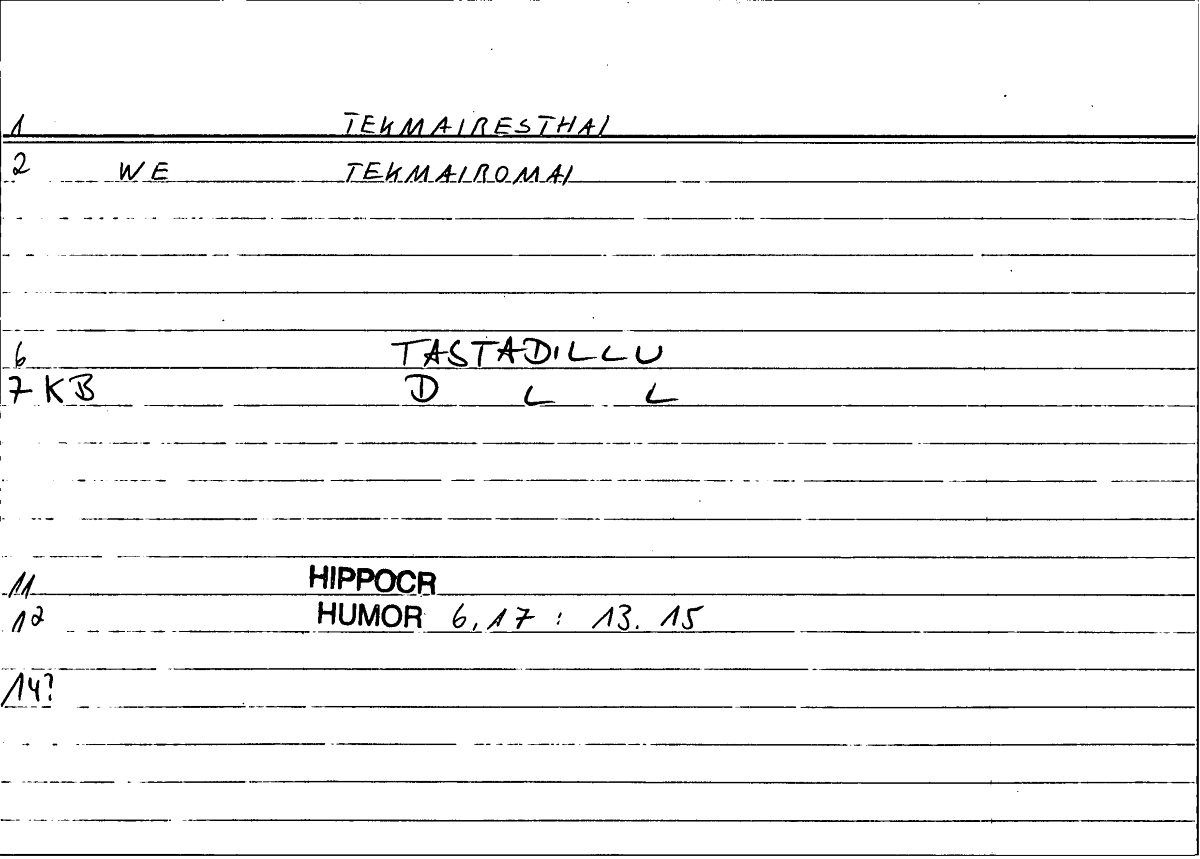 1 TEKMAIRESTHAI
2 WE TEKMAIROMAI
6 TASTADILLU
7 KB D L L
11 HIPPOCR
12 HUMOR 6,17 : 13. 15
14?